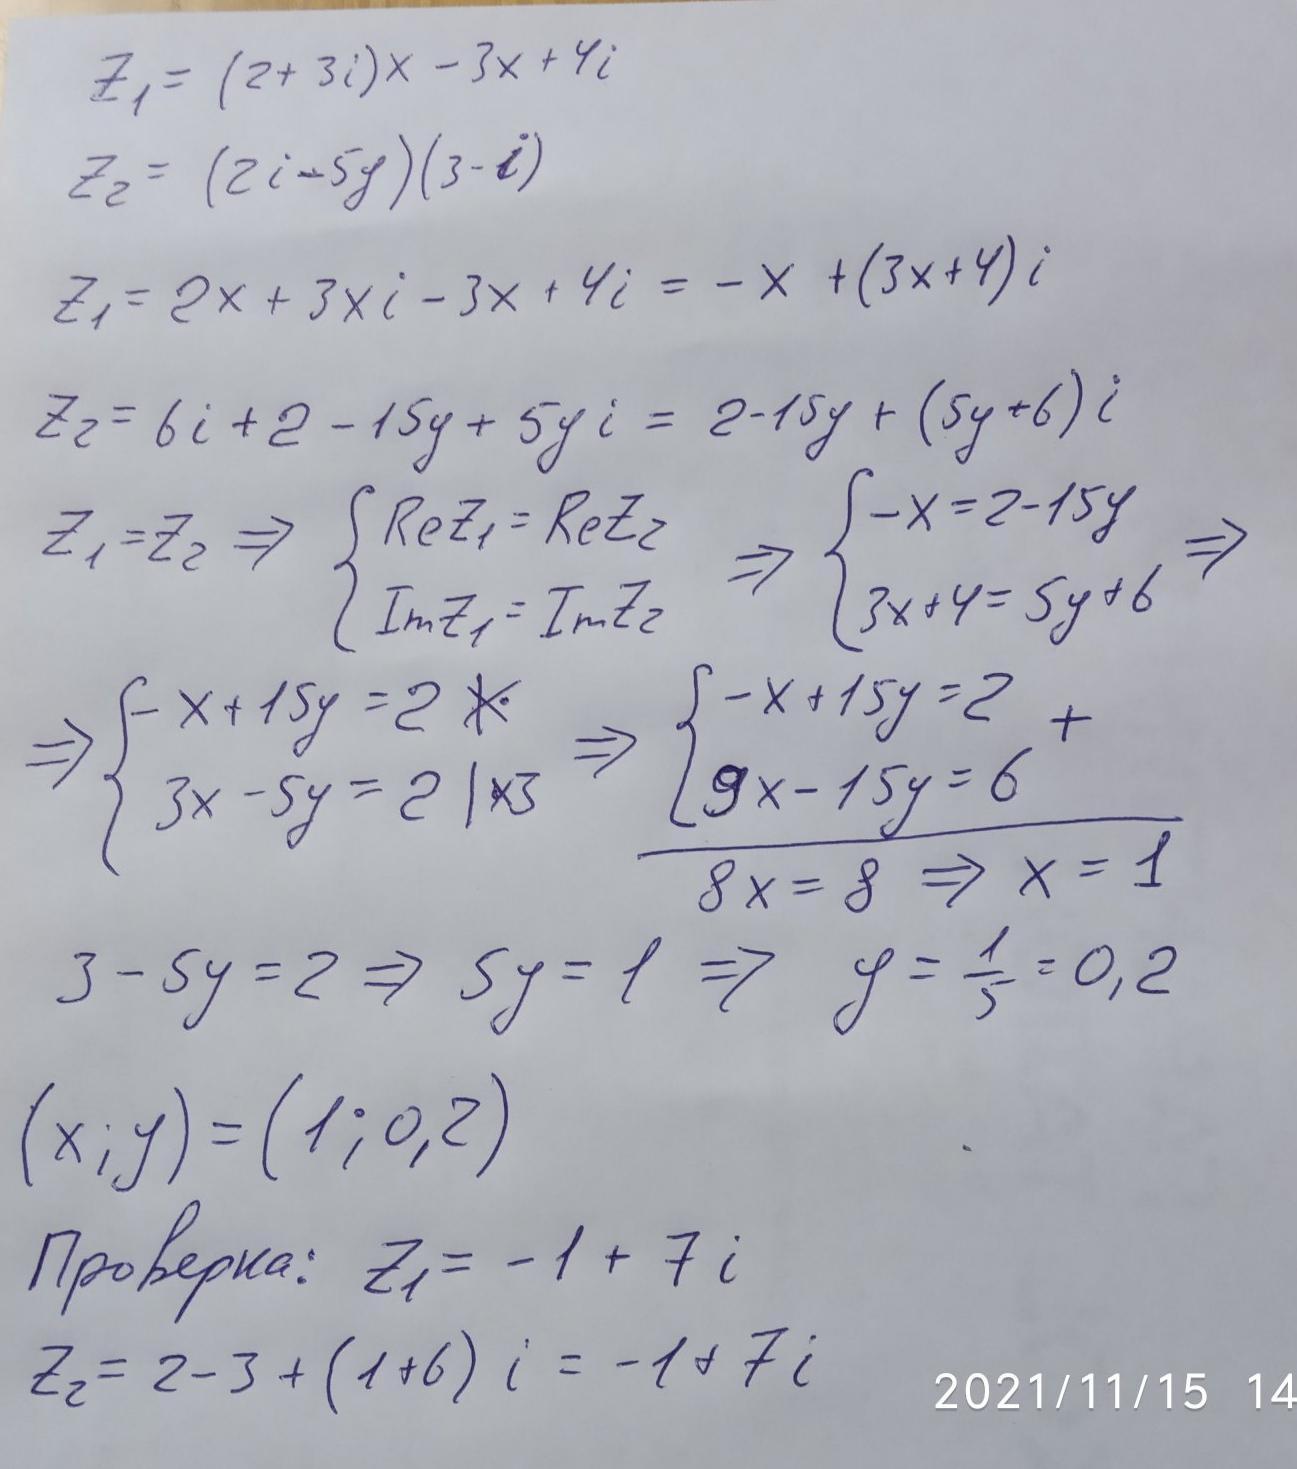 Z₁ = (2+3i)x - 3x + 4i
Z₂ = (2i-5y)(3-i)
Z₁ = 2x + 3xi - 3x + 4i = -x + (3x+4)i
Z₂ = 6i + 2 - 15y + 5yi = 2-15y + (5y+6)i
Z₁ = Z₂ ⇒ { ReZ₁ = ReZ₂ ⇒ { -x = 2-15y ⇒
ImZ₁ = ImZ₂ 3x+4 = 5y+6
⇒ { -x+15y = 2 ⇒ { -x+15y = 2 +
3x-5y = 2 |×3 9x-15y = 6
8x = 8 ⇒ x = 1
3-5y = 2 ⇒ 5y = 1 ⇒ y = 1/5 = 0,2
(x;y) = (1;0,2)
Проверка: Z₁ = -1 + 7i
Z₂ = 2-3+(1+6)i = -1+7i
2021/11/15 14